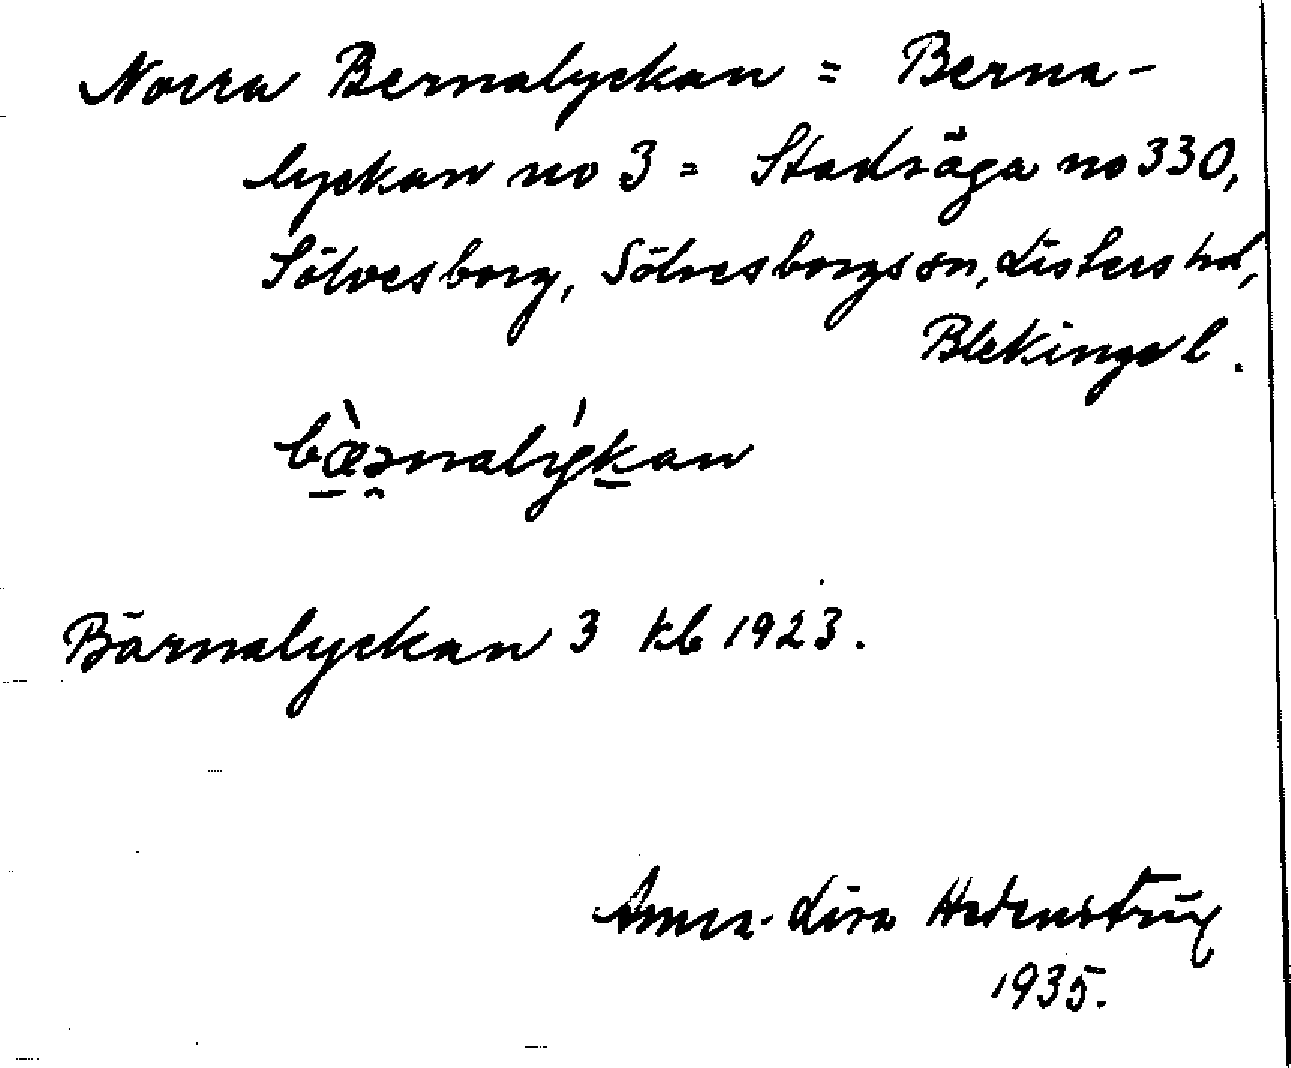 Norra Bernalyckan = Berna-
lyckan no 3 = Stadsäga no 330,
Sölvesborg, Sölvesborgs sn, Listers hd,
Blekinge l.
bæ̀ənalýkan
Bärnalyckan 3 kb 1923.
Anna-Lisa
1935.